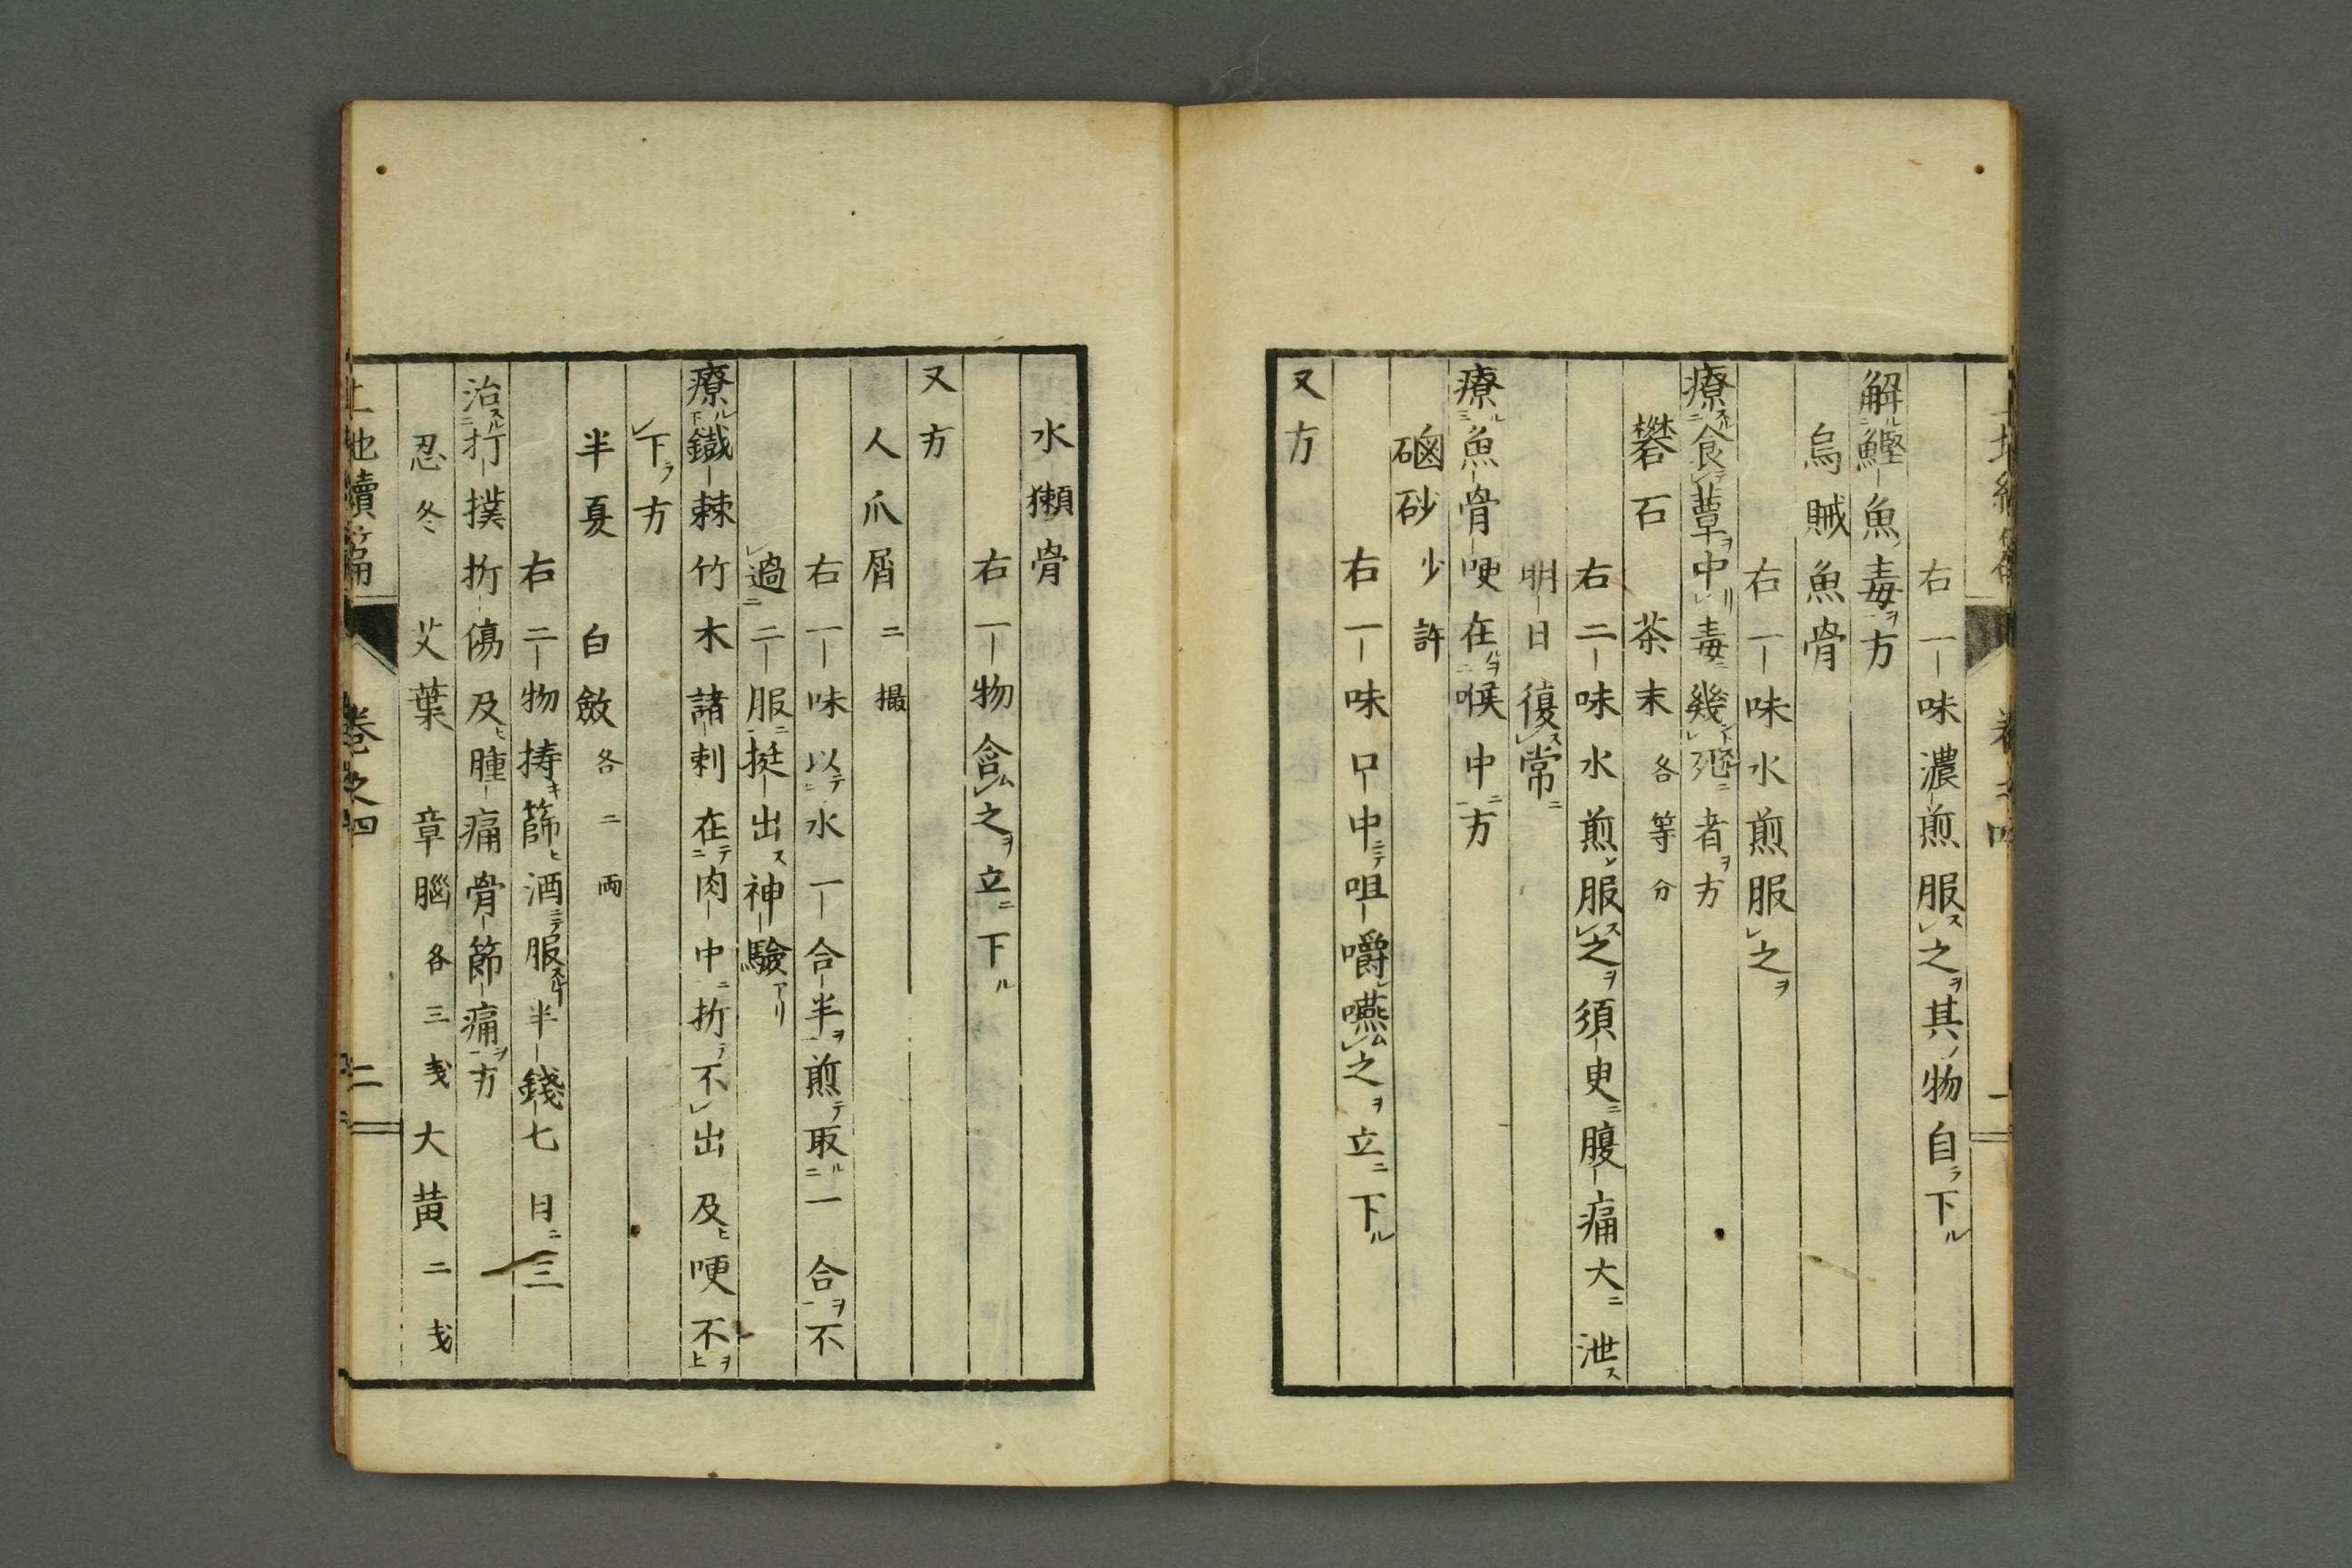 右一味濃煎服之其物自下
解鰹魚毒方
烏賊魚骨
右一味水煎服之
療食蕈中毒幾死者方
礬石 茶末各等分
右二味水煎服之須臾腹痛大泄
明日復常
療魚骨哽在喉中方
磠砂少許
右一味口中咀嚼嚥之立下
又方
水獺骨
右一物含之立下
又方
人爪屑二撮
右一味以水一合半煎取一合不
過二服挺出神驗
療鐵棘竹木諸刺在肉中折不出及哽不
下方
半夏 白斂各二両
右二物擣篩酒服半錢七日三
治打撲折傷及腫痛骨節痛方
忍冬 艾葉 章腦各三戔大黄二戔
上池續篇 卷之四 二